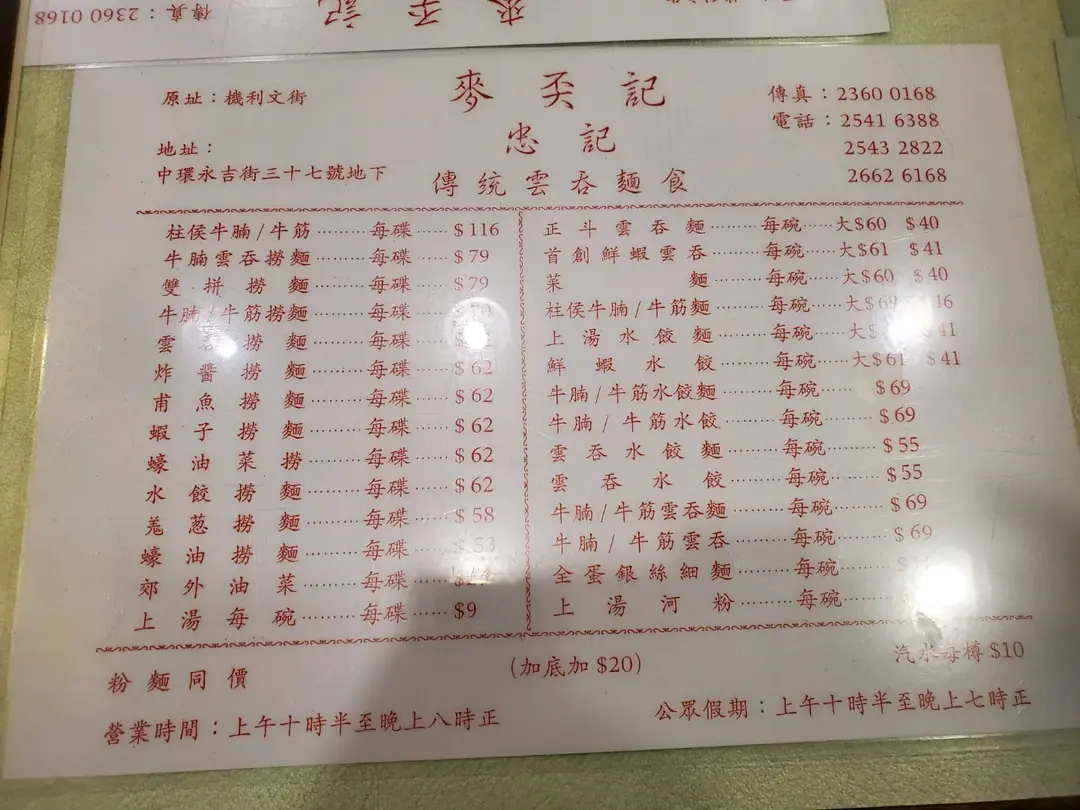 傳真：2360 0168
原址：機利文街
麥奀記
傳真：2360 0168
忠記
電話：2541 6388
地址：
2543 2822
中環永吉街三十七號地下
傳統雲吞麵食
2662 6168
柱侯牛腩/牛筋………每碟……$116
牛腩雲吞撈麵………每碟……$79
雙拼撈麵………每碟……$79
牛腩/牛筋撈麵………每碟……
雲吞撈麵………每碟……
炸醬撈麵………每碟……$62
甫魚撈麵………每碟……$62
蝦子撈麵………每碟……$62
蠔油菜撈………每碟……$62
水餃撈麵………每碟……$62
羗葱撈麵………每碟……$58
蠔油撈麵………每碟……$53
郊外油菜………每碟……
上湯每碗………每碟……$9
正斗雲吞麵………每碗……大$60 $40
首創鮮蝦雲吞………每碗……大$61 $41
菜麵………每碗……大$60 $40
柱侯牛腩/牛筋麵………每碗……大$69
上湯水餃麵………每碗……大
鮮蝦水餃………每碗……大$61 $41
牛腩/牛筋水餃麵………每碗……$69
牛腩/牛筋水餃………每碗……$69
雲吞水餃麵………每碗……$55
雲吞水餃………每碗……$55
牛腩/牛筋雲吞麵………每碗……$69
牛腩/牛筋雲吞………每碗……$69
全蛋銀絲細麵………每碗……
上湯河粉………每碗……
粉麵同價
(加底加$20)
汽水每樽$10
營業時間：上午十時半至晚上八時正
公眾假期：上午十時半至晚上七時正